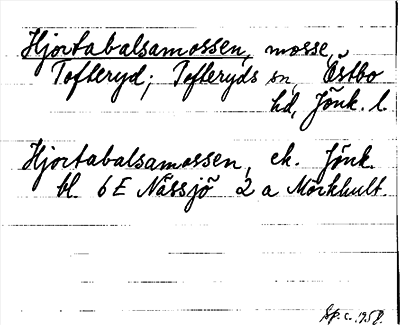 Hjortabalsamossen, mosse,
Tofteryd; Tofteryds sn, Östbo
hd, Jönk. l.
Hjortabalsamossen, ek. Jönk.
bl. 6 E Nässjö 2 a Mörkhult.
Sp. c. 1958.